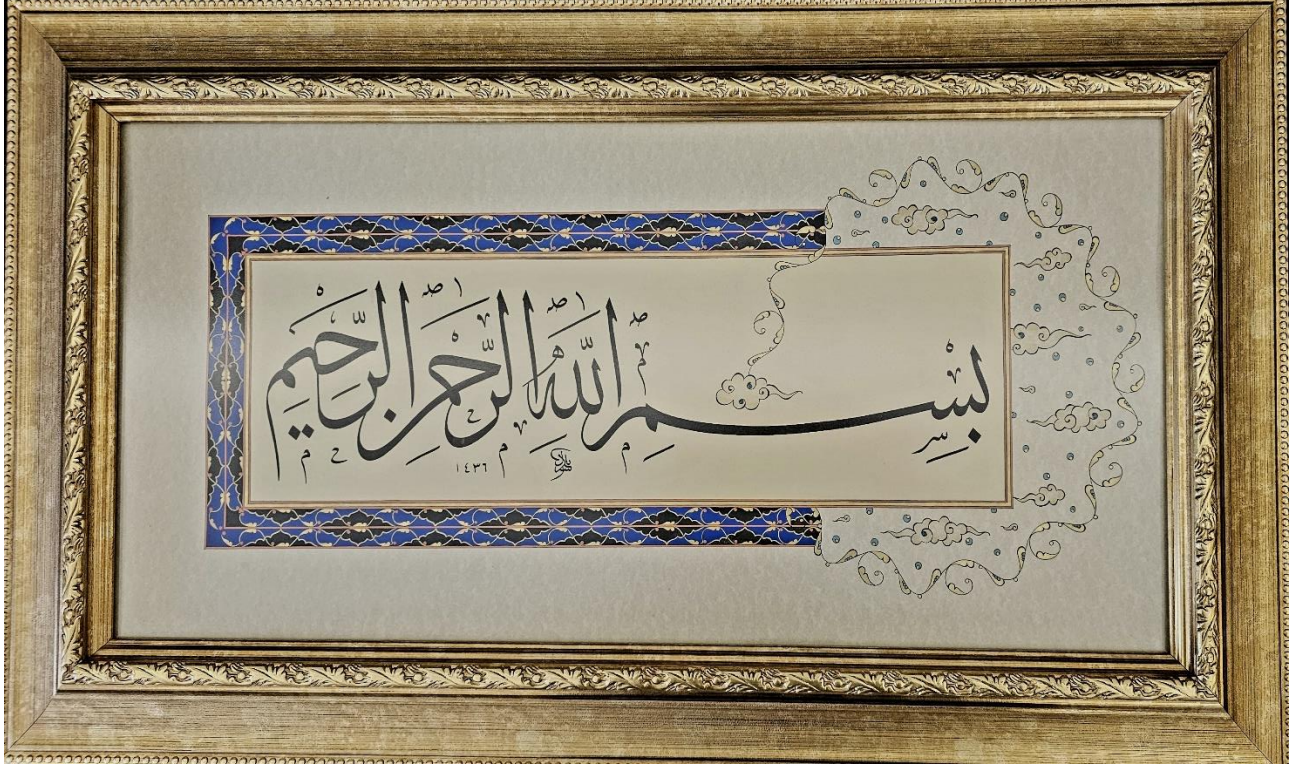 بِسْمِ اللّٰهِ الرَّحْمٰنِ الرَّحِيْمِ
١٤٣٦